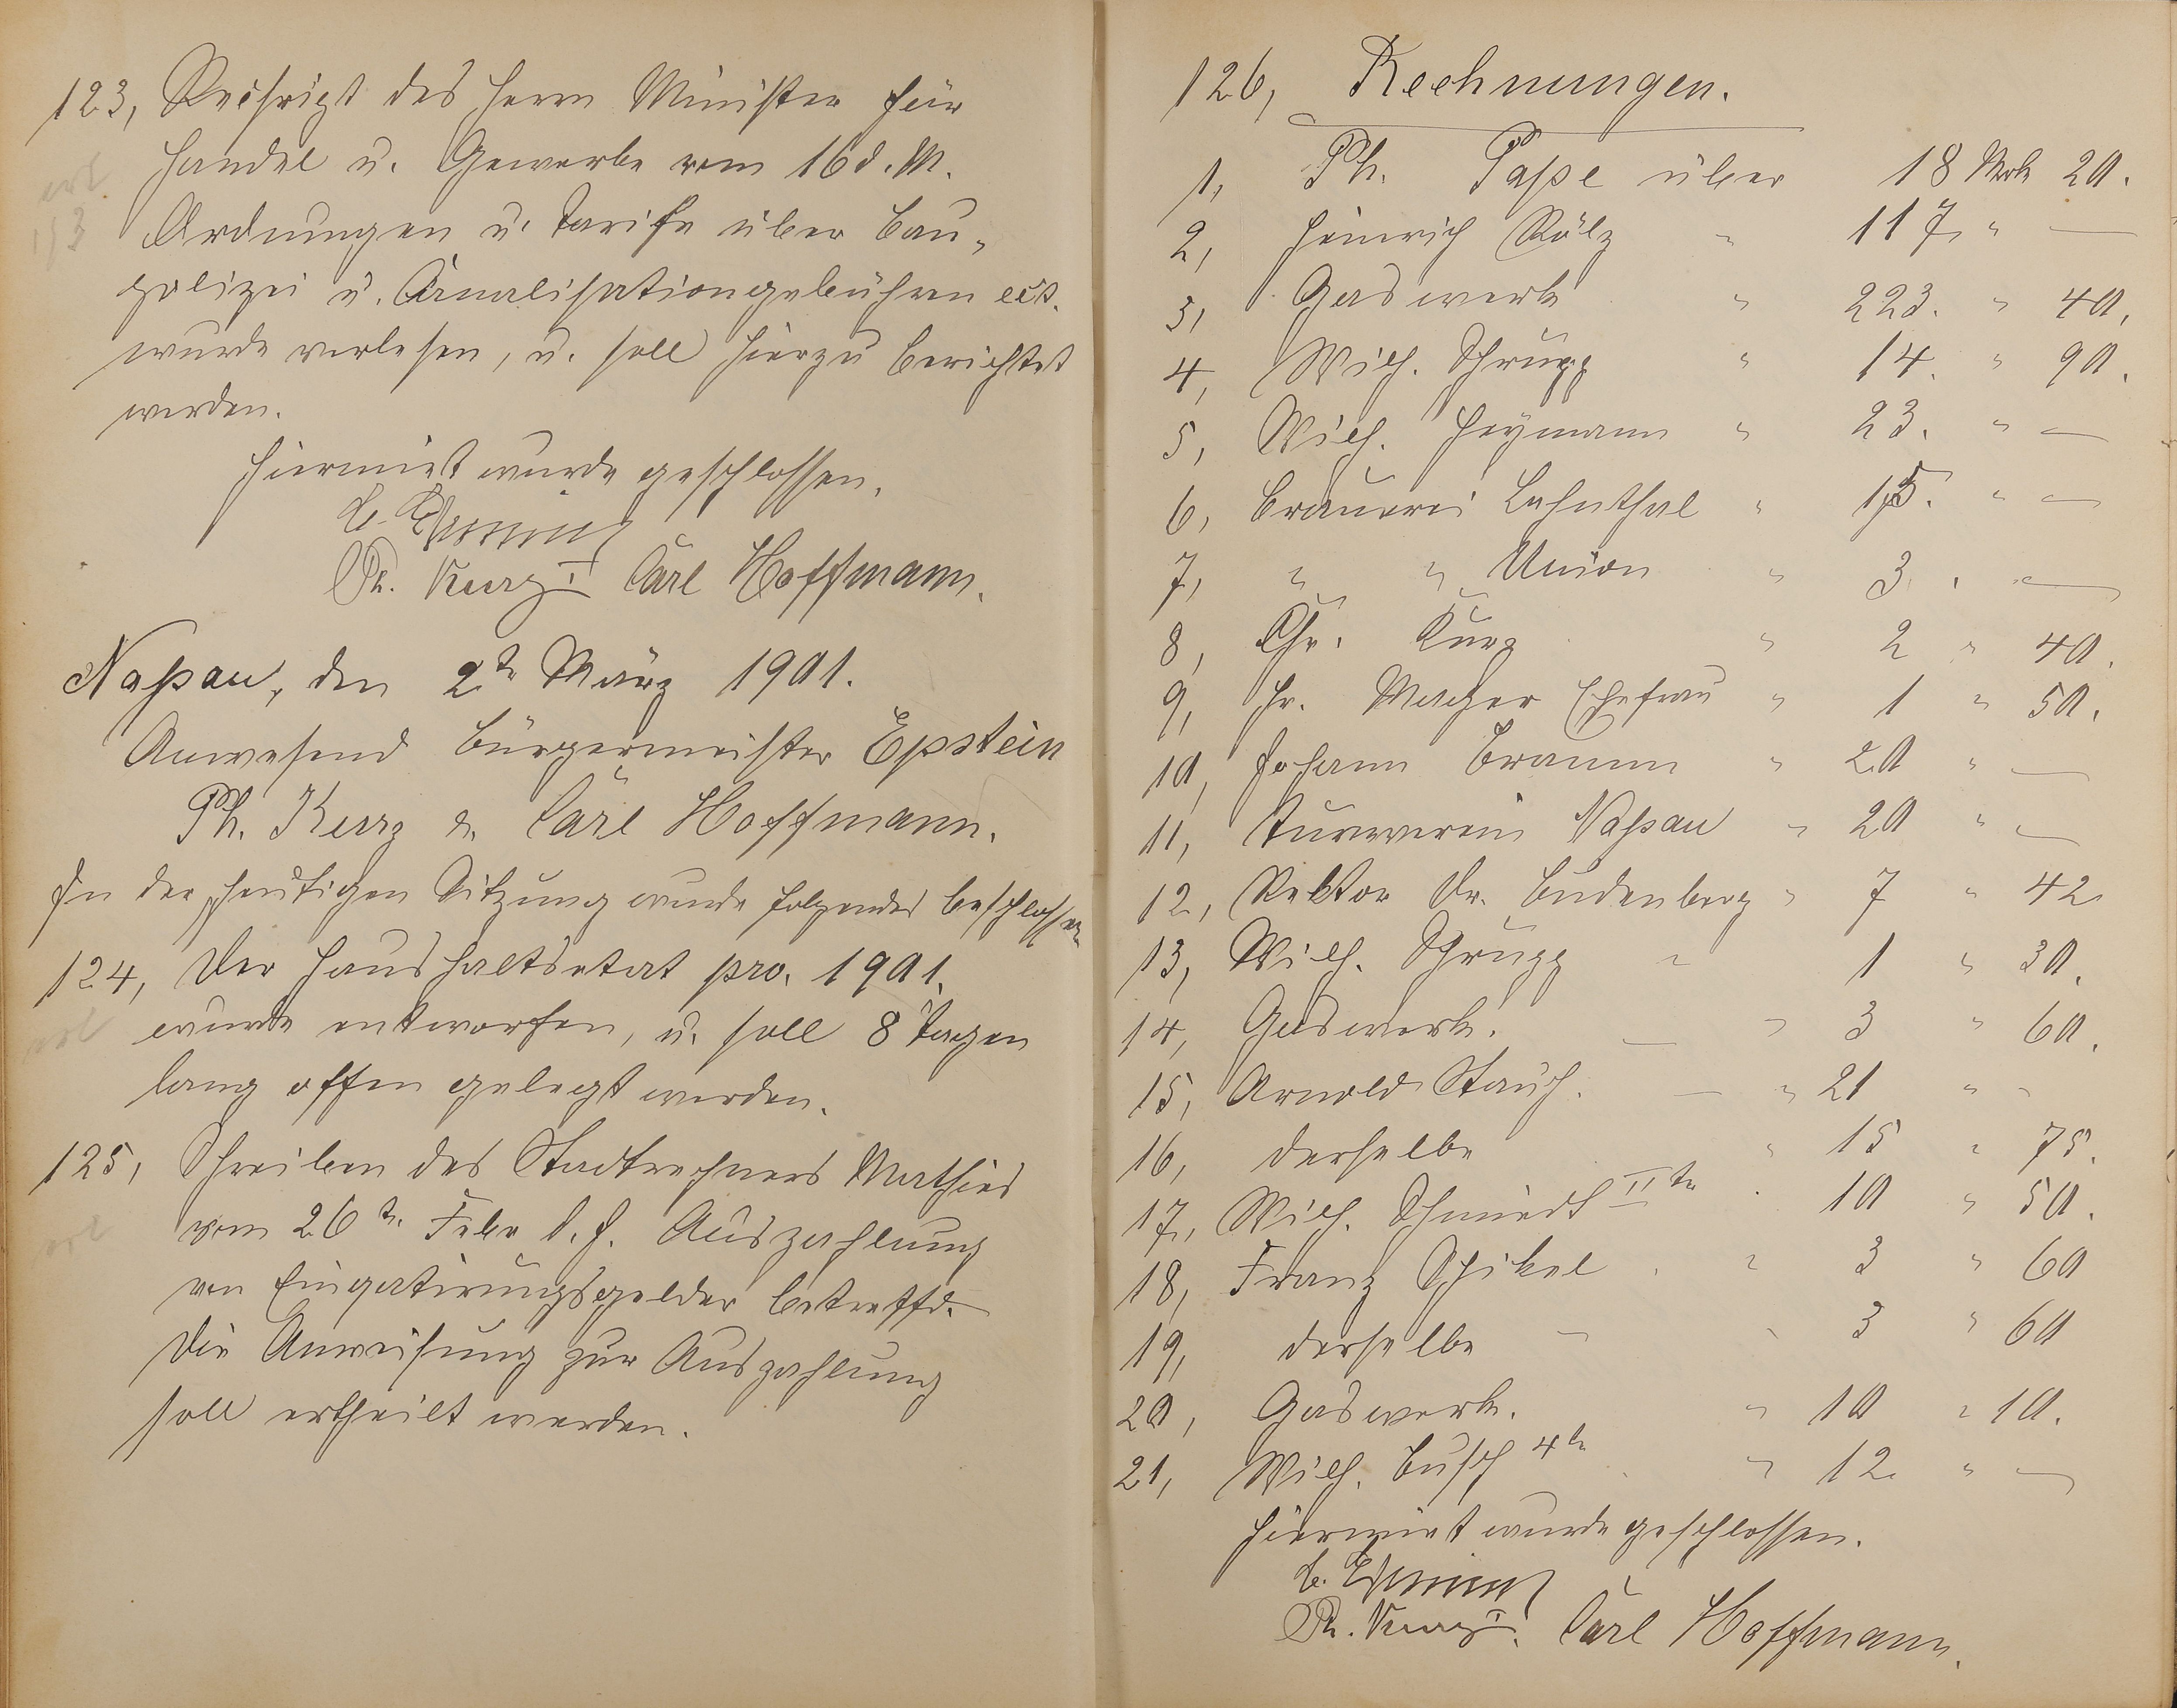 123, Rescript des Herrn Minister für
Handel u. Gewerbe vom 16 d. M.
Ordnungen u. Tarife über Bau-
polizei u. Canalisationgebühren ect.
wurde verlesen, u. soll hierzu berichtet
werden.
erl
1/3
Hiermit wurde geschlossen.
Ph. Kurz I Carl Hoffmann.
Naßau, den 2te März 1901.
Anwesend Bürgermeister Epstein
Ph. Kurz & Carl Hoffmann.
In der heutigen Sitzung wurde folgendes beschlossen
124, Der Haushaltsetat pro. 1901.
wurde entworfen, u. soll 8 Tagen
lang offen gelegt werden.
erl
125, Schreiben des Stadtrechners Mathies
vom 26te Febr d. J. Auszahlung
von Einquatirungsgelder betreffd.
Die Anweisung zur Auszahlung
soll ertheilt werden.
erl
126, Rechnungen.
1, Ph. Paße über 18 Mrk 20.
2, Heinrich Kölz " 117 " —
3, Gaswerk " 223. " 40.
4, Wilh. Schrupp " 14. " 90.
5, Wilh. Heymann " 23. " —
6, Brauerei Lahnthal " 15. " —
7, " " Union " 3. " —
8, Chr. Kurz " 2 " 40.
9, Hr. Ehefrau " 1 " 50.
10, Johann Braun " 20 " —
11, Turnverein Naßau " 20 " —
12, Rektor Dr. Budenberg " 7 " 42
13, Wilh. Schrupp " 1 " 30.
14, Gaswerk. — " 3 " 60.
15, Arnold Stauch. — " 21 " "
16, derselbe " 15 " 75.
17, Wilh. Schmidt IIte " 10 " 50.
18, Franz Schikel " 3 " 60
19, derselbe " " 3 " 60
20, Gaswerk. " 10 " 10.
21, Wilh. Busch 4te " 12 " —
Hiermit wurde geschlossen.
Ph. Kurz I. Carl Hoffmann.